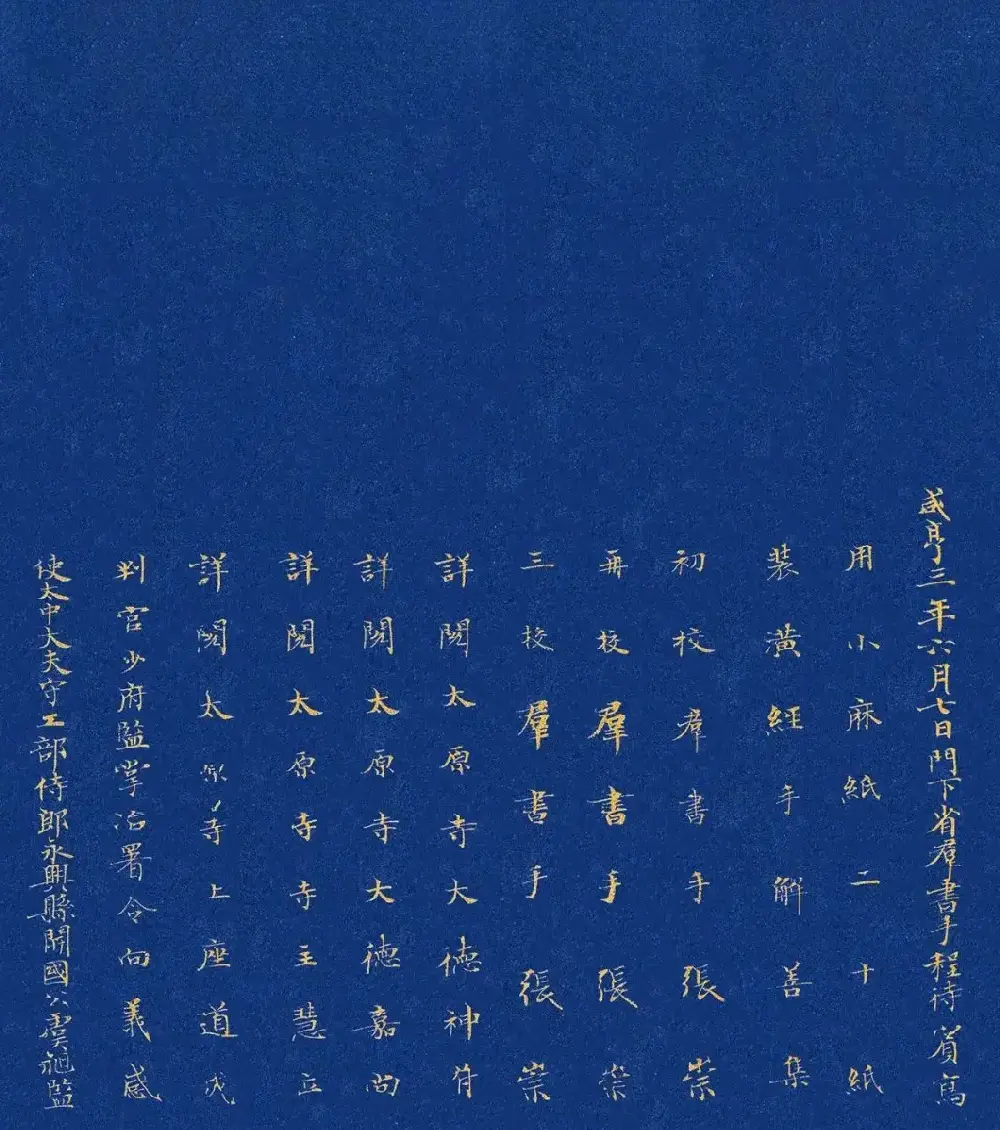 咸亨三年六月七日門下省群書手程待賓寫
用小麻紙二十紙
装潢經手解善集
初校群書手張崇
再校羣書手張崇
三校羣書手張崇
詳閱太原寺大德神符
詳閱太原寺大德嘉尚
詳閱太原寺寺主慧立
詳閱太原寺上座道成
判官少府監掌冶署令向義感
使太中大夫守工部侍郎永興縣開國公虞昶監